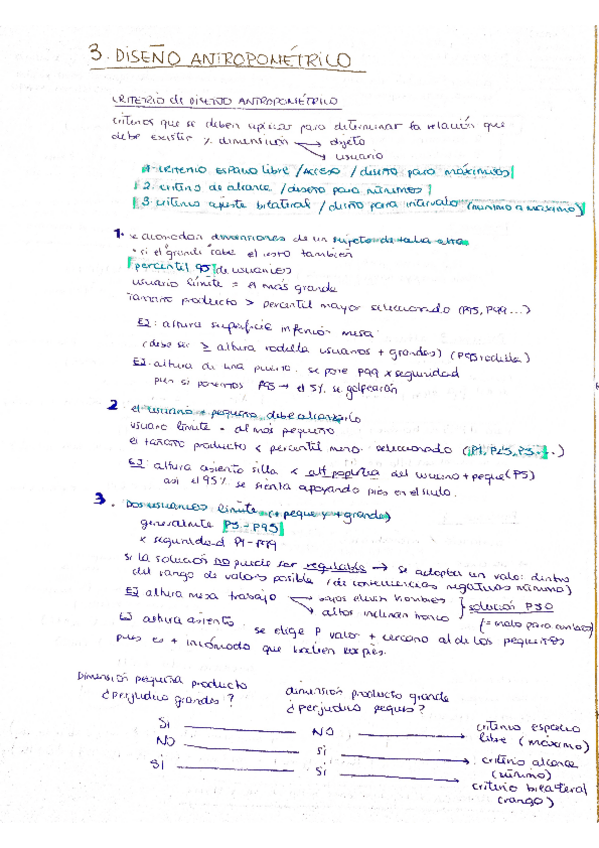 3. DISEÑO ANTROPOMÉTRICO
CRITERIO de DISEÑO ANTROPOMÉTRICO
criterios que se deben aplicar para determinar la relación que
debe existir / dimensión → objeto
→ usuario
1. CRITERIO ESPACIO LIBRE / ACCESO / diseño para máximos
2. criterio de alcance / diseño para mínimos
3. criterio ajuste bilateral / diseño para intervalo (mínimo a máximo)
1. x acomodar dimensiones de un sujeto de talla alta
• si el "grande" cabe el resto también
percentil 95 de usuarios
usuario límite = el más grande
Tamaño producto > percentil mayor seleccionado (P95, P99...)
EJ: altura superficie inferior mesa
(debe ser ≥ altura rodilla usuarios + grandes) (P95 rodilla)
EJ: altura de una puerta. se pone P99 x seguridad
pues si ponemos P95 → el 5% se golpearán
2. el usuario + pequeño debe alcanzarlo
usuario límite = al más pequeño
el tamaño producto < percentil menor seleccionado (P1, P2,5, P5...)
EJ: altura asiento silla < alt poplítea del usuario + peque (P5)
así el 95% se sienta apoyando pies en el suelo.
3. DOS USUARIOS límite (+ peque y + grande)
generalmente P5-P95
x seguridad P1-P99
si la solución no puede ser regulable → se adopta un valor dentro
del rango de valores posible (de consecuencias negativas mínimo)
EJ altura mesa trabajo → bajos elevan hombros
→ altos inclinan tronco } solución P50
(= malo para ambos)
EJ altura asiento. se elige P valor + cercano al de los pequeños
pues es + incómodo que cuelguen los pies.
Dimensión pequeña producto
¿perjudica grandes?
dimensión producto grande
¿perjudica peques?
SI NO → criterio espacio
libre (máximo)
NO SI → criterio alcance
(mínimo)
SI SI → criterio bilateral
(rango)